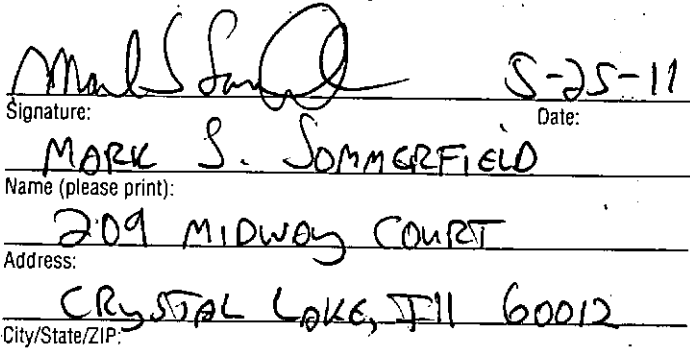 Mark S Som 5-25-11
Signature: Date:
MARK S. SOMMERFIELD
Name (please print):
209 MIDWAY COURT
Address:
CRYSTAL LAKE, Ill 60012
City/State/ZIP: